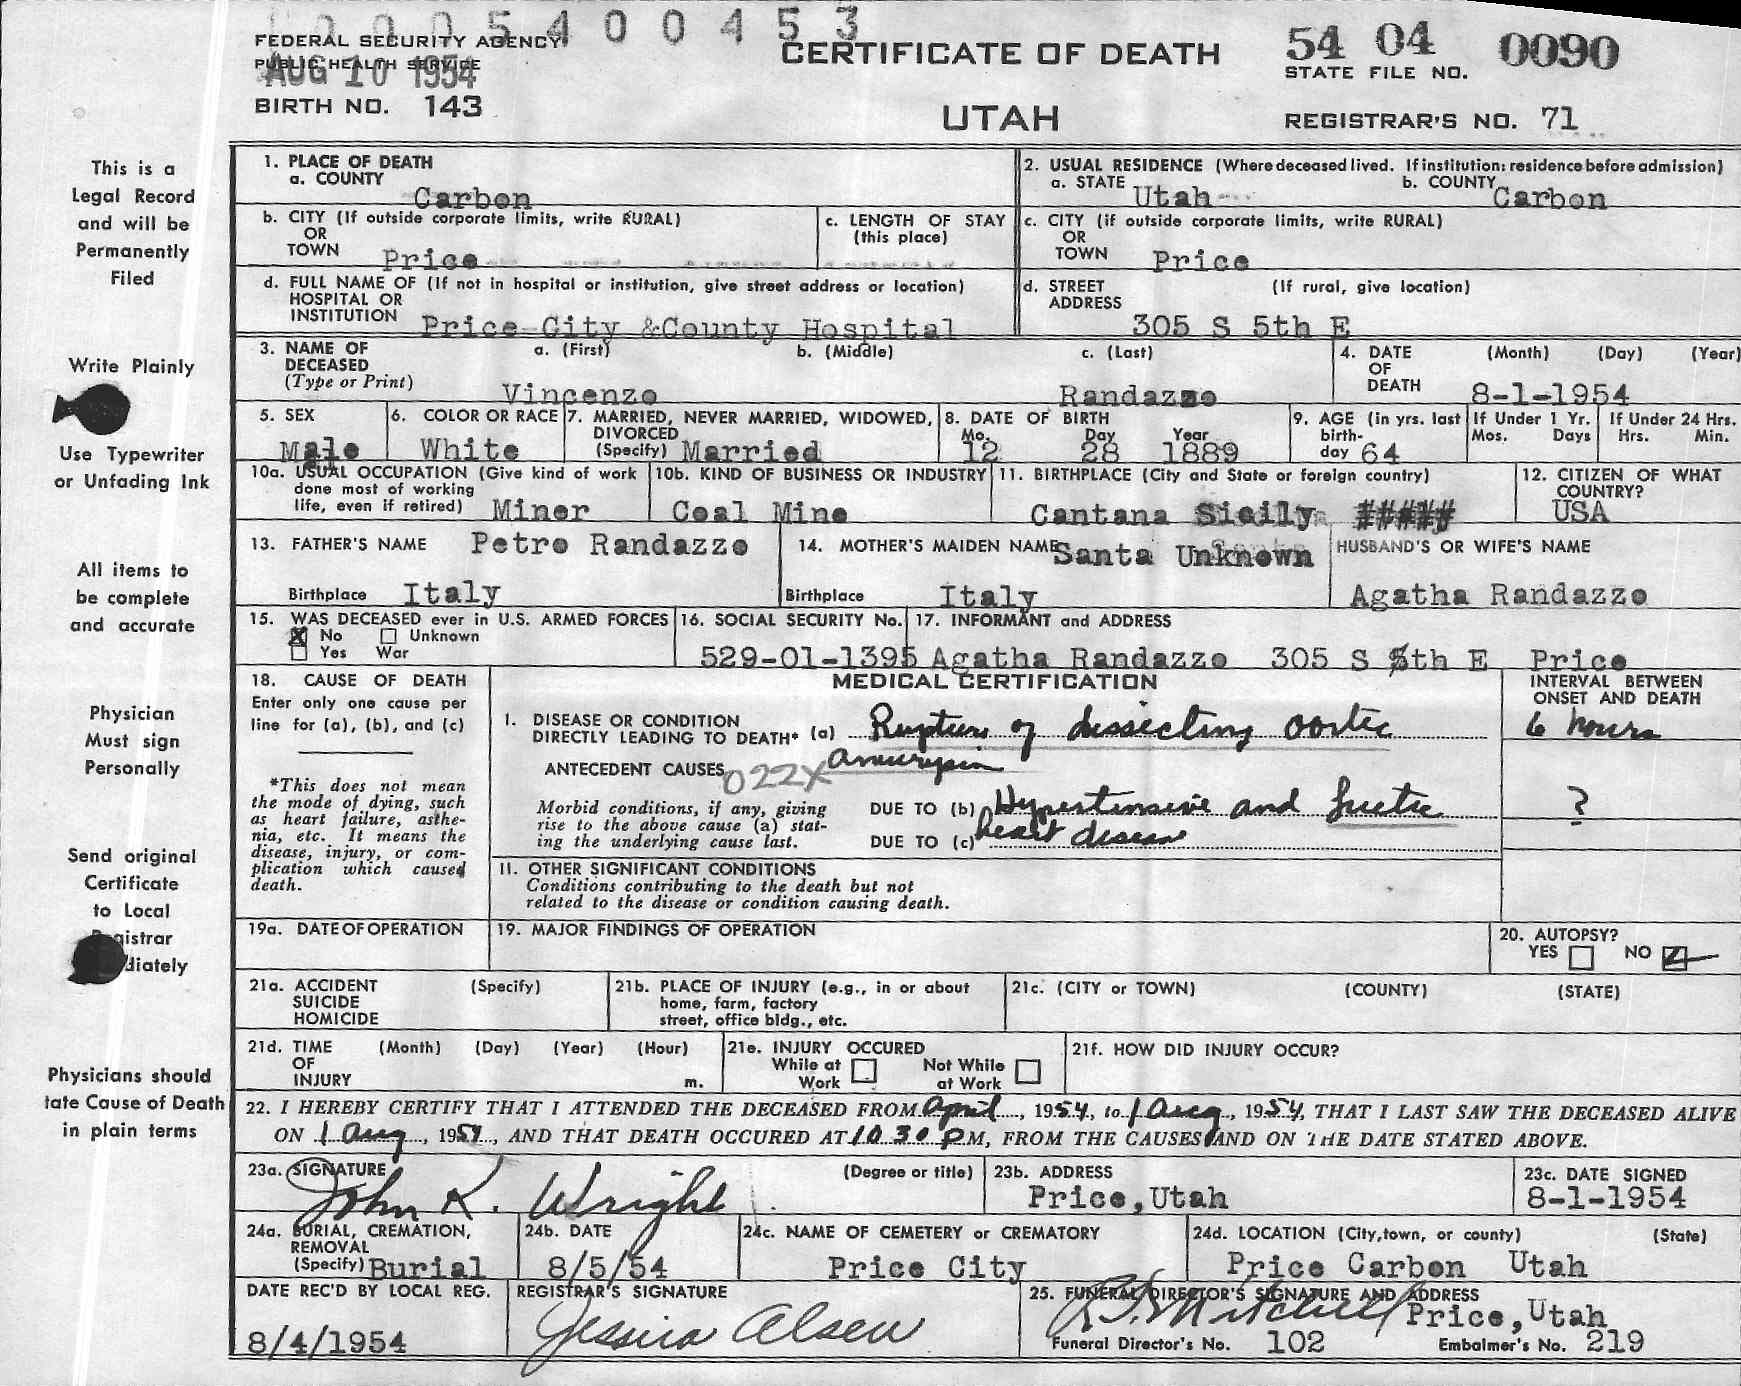 0005400453
FEDERAL SECURITY AGENCY
PUBLIC HEALTH SERVICE
AUG 10 1954
BIRTH NO. 143
CERTIFICATE OF DEATH
UTAH
54 04 0090
STATE FILE NO.
REGISTRAR'S NO. 71
This is a
Legal Record
and will be
Permanently
Filed
Write Plainly
Use Typewriter
or Unfading Ink
All items to
be complete
and accurate
Physician
Must sign
Personally
Send original
Certificate
to Local
gistrar
diately
Physicians should
tate Cause of Death
in plain terms
1. PLACE OF DEATH
a. COUNTY Carbon
2. USUAL RESIDENCE (Where deceased lived. If institution: residence before admission)
a. STATE Utah b. COUNTY Carbon
b. CITY (If outside corporate limits, write RURAL)
OR
TOWN Price
c. LENGTH OF STAY
(this place)
c. CITY (if outside corporate limits, write RURAL)
OR
TOWN Price
d. FULL NAME OF (If not in hospital or institution, give street address or location)
HOSPITAL OR
INSTITUTION Price City &County Hospital
d. STREET (If rural, give location)
ADDRESS
305 S 5th E
3. NAME OF a. (First) b. (Middle) c. (Last)
DECEASED
(Type or Print) Vincenzo Randazzo
4. DATE (Month) (Day) (Year)
OF
DEATH 8-1-1954
5. SEX
Male
6. COLOR OR RACE
White
7. MARRIED, NEVER MARRIED, WIDOWED,
DIVORCED
(Specify) Married
8. DATE OF BIRTH
Mo. Day Year
12 28 1889
9. AGE (in yrs. last
birth-
day 64
If Under 1 Yr.
Mos. Days
If Under 24 Hrs.
Hrs. Min.
10a. USUAL OCCUPATION (Give kind of work
done most of working
life, even if retired) Miner
10b. KIND OF BUSINESS OR INDUSTRY
Coal Mine
11. BIRTHPLACE (City and State or foreign country)
Cantana Sicily #####
12. CITIZEN OF WHAT
COUNTRY?
USA
13. FATHER'S NAME Petro Randazzo
Birthplace Italy
14. MOTHER'S MAIDEN NAME Santa Unknown
Birthplace Italy
HUSBAND'S OR WIFE'S NAME
Agatha Randazzo
15. WAS DECEASED ever in U.S. ARMED FORCES
X No Unknown
Yes War
16. SOCIAL SECURITY No.
529-01-1395
17. INFORMANT and ADDRESS
Agatha Randazzo 305 S 5th E Price
18. CAUSE OF DEATH
Enter only one cause per
line for (a), (b), and (c)
*This does not mean
the mode of dying, such
as heart failure, asthe-
nia, etc. It means the
disease, injury, or com-
plication which caused
death.
MEDICAL CERTIFICATION
INTERVAL BETWEEN
ONSET AND DEATH
I. DISEASE OR CONDITION
DIRECTLY LEADING TO DEATH* (a) Rupture of dissecting aortic 6 hours
aneurysm
ANTECEDENT CAUSES 022X
Morbid conditions, if any, giving
rise to the above cause (a) stat-
ing the underlying cause last.
DUE TO (b) Hypertensive and luetic ?
DUE TO (c) heart disease
11. OTHER SIGNIFICANT CONDITIONS
Conditions contributing to the death but not
related to the disease or condition causing death.
19a. DATE OF OPERATION
19. MAJOR FINDINGS OF OPERATION
20. AUTOPSY?
YES NO
21a. ACCIDENT (Specify)
SUICIDE
HOMICIDE
21b. PLACE OF INJURY (e.g., in or about
home, farm, factory
street, office bldg., etc.
21c. (CITY or TOWN) (COUNTY) (STATE)
21d. TIME (Month) (Day) (Year) (Hour)
OF
INJURY m.
21e. INJURY OCCURED
While at Not While
Work at Work
21f. HOW DID INJURY OCCUR?
22. I HEREBY CERTIFY THAT I ATTENDED THE DECEASED FROM April, 1954, to 1 Aug, 1954, THAT I LAST SAW THE DECEASED ALIVE
ON 1 Aug, 1954, AND THAT DEATH OCCURED AT 10 30 PM, FROM THE CAUSES AND ON THE DATE STATED ABOVE.
23a. SIGNATURE (Degree or title)
John K. Wright
23b. ADDRESS
Price,Utah
23c. DATE SIGNED
8-1-1954
24a. BURIAL, CREMATION,
REMOVAL
(Specify) Burial
24b. DATE
8/5/54
24c. NAME OF CEMETERY or CREMATORY
Price City
24d. LOCATION (City,town, or county) (State)
Price Carbon Utah
DATE REC'D BY LOCAL REG.
8/4/1954
REGISTRAR'S SIGNATURE
Jessica Olsen
25. FUNERAL DIRECTOR'S SIGNATURE AND ADDRESS
Mitchell Price,Utah
Funeral Director's No. 102 Embalmer's No. 219